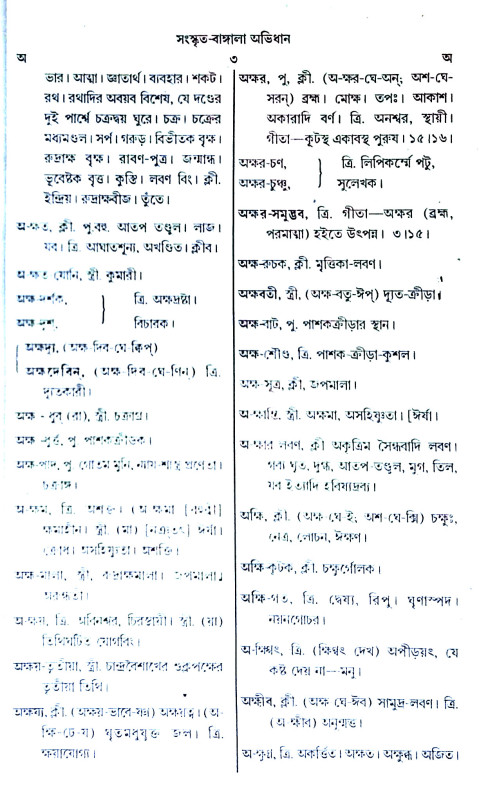 সংস্কৃত-বাঙ্গালা অভিধান
অ
৩
অ
ভার। আত্মা। জ্ঞাতার্থ। ব্যবহার। শকট।
রথ। রথাদির অবয়ব বিশেষ, যে দণ্ডের
দুই পার্শ্বে চক্রদ্বয় ঘুরে। চক্র। চক্রের
মধ্যমণ্ডল। সর্প। গরুড়। বিভীতক বৃক্ষ।
রুদ্রাক্ষ বৃক্ষ। রাবণ-পুত্র। জন্মান্ধ।
ভূবেষ্টক বৃত্ত। কুস্তি। লবণ বিং। ক্লী.
ইন্দ্রিয়। রুদ্রাক্ষবীজ। তুঁতে।
অ-ক্ষত, ক্লী. পু.বহু. আতপ তণ্ডুল। লাজ।
যব। ত্রি. আঘাতশূন্য, অখণ্ডিত। ক্লীব।
অ-ক্ষত যোনি, স্ত্রী. কুমারী।
অক্ষ-দর্শক, ত্রি. অক্ষদ্রষ্টা।
অক্ষ-দৃশ, বিচারক।
অক্ষদ্যু, (অক্ষ-দিব-ঘে-ক্বিপ্)
অক্ষদেবিন, (অক্ষ-দিব-ঘে-ণিন্) ত্রি.
দ্যূতকারী।
অক্ষ - ধুর্ (রা), স্ত্রী. চক্রাগ্র।
অক্ষ -ধূর্ত্ত, পু. পাশকক্রীড়ক।
অক্ষ-পাদ, পু. গোতম মুনি, ন্যায়-শাস্ত্র প্রণেতা।
চক্রাঙ্গ।
অ-ক্ষম, ত্রি. অশক্ত। (অ ক্ষমা
ক্ষমাহীন। স্ত্রী. (মা) [নঞ্তৎ] ঈর্ষা।
ক্রোধ। অসহিষ্ণুতা। অশক্তি।
অক্ষ-মালা, স্ত্রী, রুদ্রাক্ষমালা। জপমালা।
অরুন্ধতী।
অ-ক্ষয়, ত্রি. অবিনশ্বর, চিরস্থায়ী। স্ত্রী. (য়া)
তিথিঘটিত যোগবিং।
অক্ষয়-তৃতীয়া, স্ত্রী. চান্দ্রবৈশাখের শুক্লপক্ষের
তৃতীয়া তিথি।
অক্ষয্য, ক্লী. (অক্ষয়-ভাবে-যন্) অক্ষয়ত্ব। (অ-
ক্ষি-ঢে-য) ঘৃতমধুযুক্ত জল। ত্রি.
ক্ষয়াযোগ্য।
অক্ষর, পু, ক্লী. (অ-ক্ষর-ঘে-অন্; অশ-ঘে-
সরন্) ব্রহ্ম। মোক্ষ। তপঃ। আকাশ।
অকারাদি বর্ণ। ত্রি. অনশ্বর, স্থায়ী।
গীতা—কূটস্থ একাবস্থ পুরুষ। ১৫।১৬।
অক্ষর-চণ, ত্রি. লিপিকর্ম্মে পটু,
অক্ষর-চুঞ্চু, সুলেখক।
অক্ষর-সমুদ্ভব, ত্রি. গীতা—অক্ষর (ব্রহ্ম,
পরমাত্মা) হইতে উৎপন্ন। ৩।১৫।
অক্ষ-রুচক, ক্লী. মৃত্তিকা-লবণ।
অক্ষবতী, স্ত্রী, (অক্ষ-বতু-ঈপ্) দ্যূত-ক্রীড়া।
অক্ষ-বাট, পু. পাশকক্রীড়ার স্থান।
অক্ষ-শৌণ্ড, ত্রি. পাশক-ক্রীড়া-কুশল।
অক্ষ-সূত্র, ক্লী, জপমালা।
অ-ক্ষান্তি, স্ত্রী. অক্ষমা, অসহিষ্ণুতা। [ঈর্যা।
অ-ক্ষার লবণ, ক্লী অকৃত্রিম সৈন্ধবাদি লবণ।
গব্য ঘৃত, দুগ্ধ, আতপ-তণ্ডুল, মুগ, তিল,
যব ইত্যাদি হবিষ্যদ্রব্য।
অক্ষি, ক্লী. (অক্ষ-ঘে-ই; অশ-ঘে-ক্সি) চক্ষুঃ,
নেত্র, লোচন, ঈক্ষণ।
অক্ষি-কূটক, ক্লী. চক্ষুর্গোলক।
অক্ষি-গত, ত্রি. দ্বেষ্য, রিপু। ঘৃণাস্পদ।
নয়নগোচর।
অ-ক্ষিণ্বং, ত্রি. (ক্ষিণ্বং দেখ) অপীড়য়ৎ, যে
কষ্ট দেয় না—মনু।
অক্ষীব, ক্লী. (অক্ষ ঘে-ঈব) সামুদ্র-লবণ। ত্রি.
(অ ক্ষীব) অনুন্মত্ত।
অ-ক্ষুণ্ণ, ত্রি. অকর্ত্তিত। অক্ষত। অক্ষুব্ধ। অজিত।